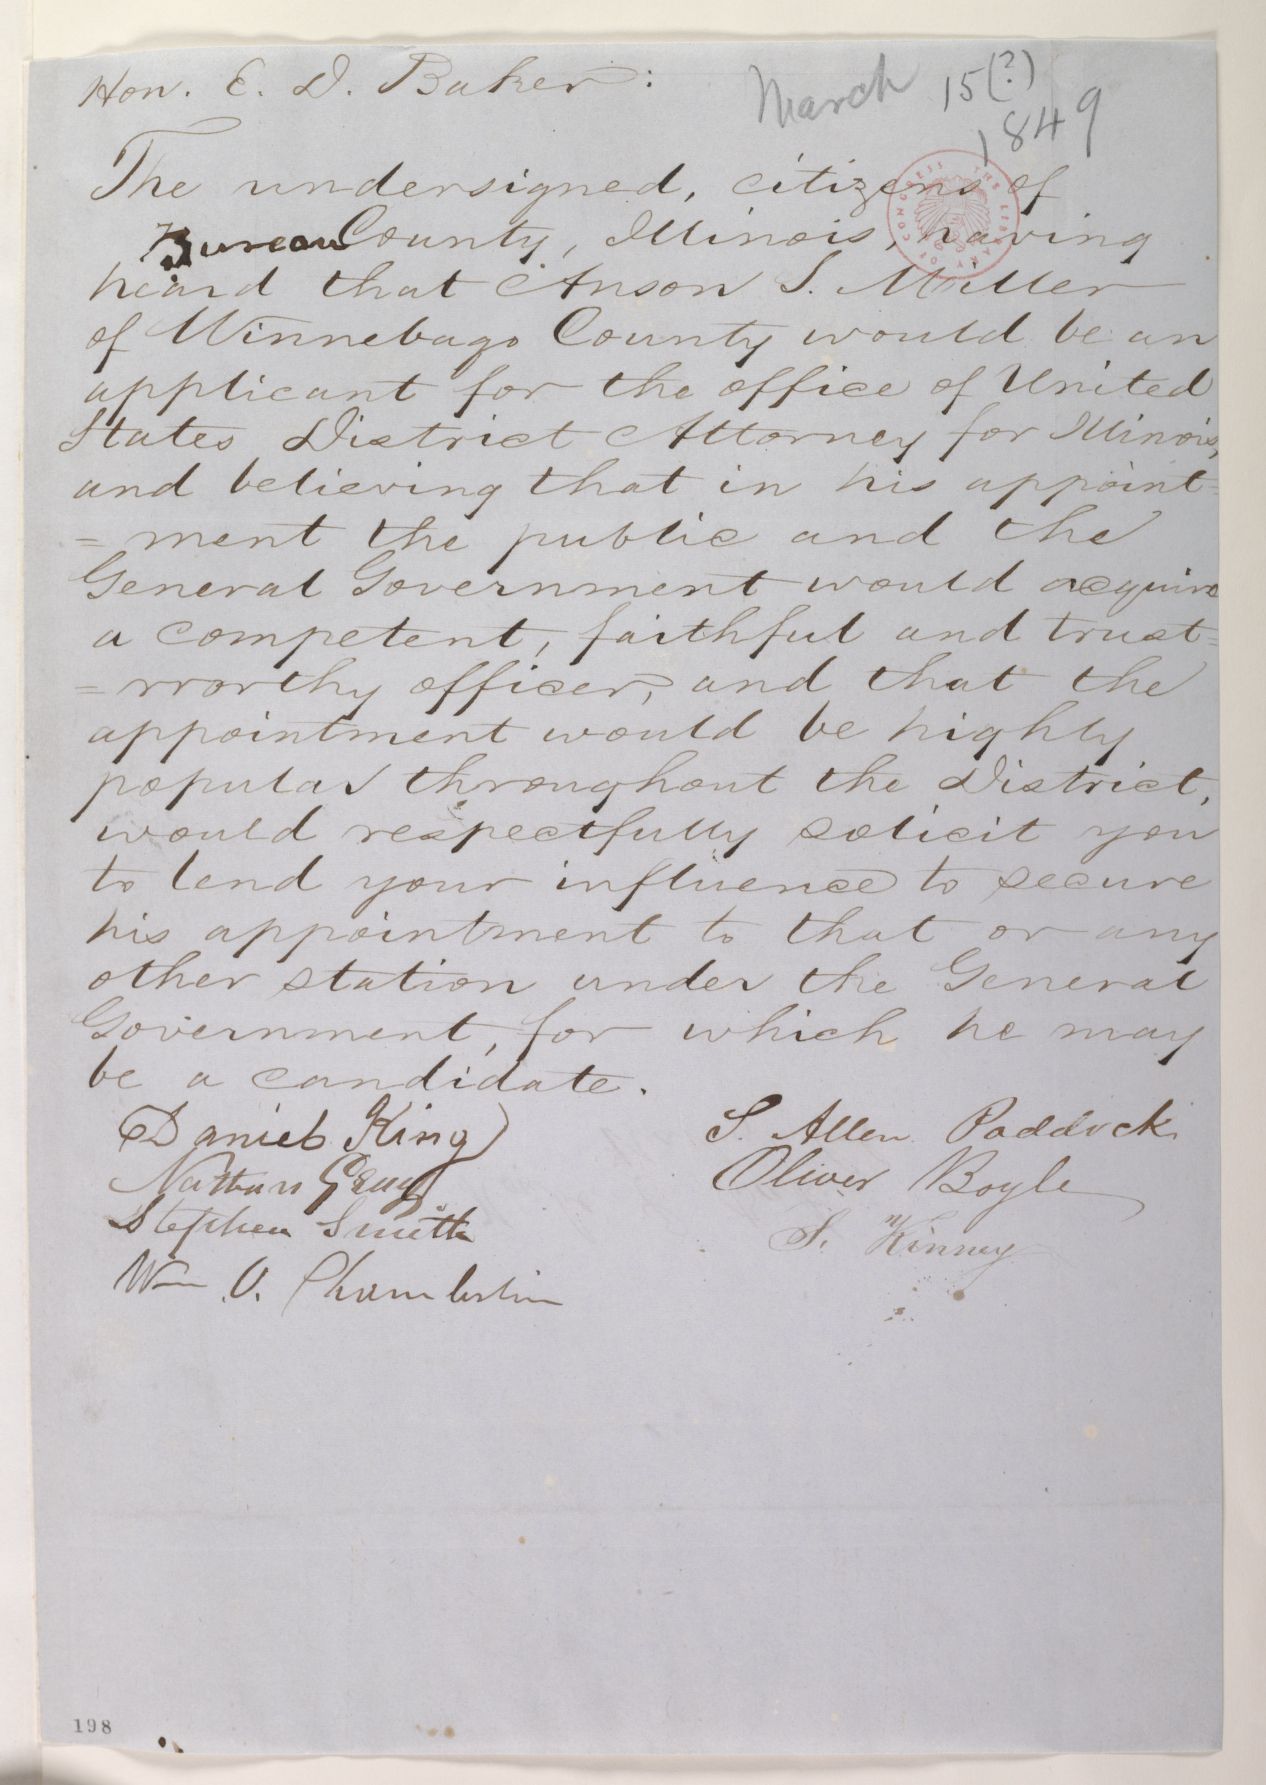 Hon. E. D. Baker:
March 15(?)
1849
The undersigned, citizens of
Bureau County, Illinois, having
heard that Anson S. Miller
of Winnebago County would be an
applicant for the office of United
States District Attorney for Illinois,
and believing that in his appoint=
=ment the public and the
General Government would acquire
a competent, faithful and trust=
=worthy officer, and that the
appointment would be highly
popular throughout the District,
would respectfully solicit you
to lend your influence to secure
his appointment to that or any
other station under the General
Government, for which he may
be a candidate.
Daniel King
Nathan
Stephen Smith
Wm O. Chamberlin
S. Allen Paddock
Oliver Boyle
S. Kinney
THE LIBRARY OF CONGRESS
198